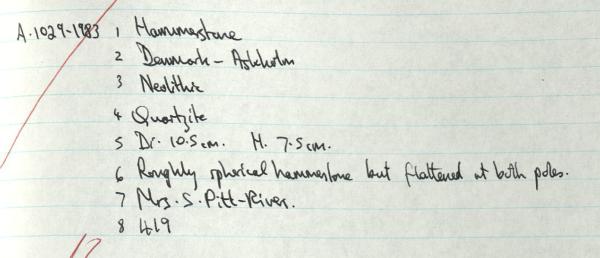 A.1029-1983 1 Hammerstone
2 Denmark - Askholm
3 Neolithic
4 Quartzite
5 Dr. 10.5cm. H. 7.5cm.
6 Roughly spherical hammerstone but flattened at both poles.
7 Mrs. S. Pitt-River.
8 419